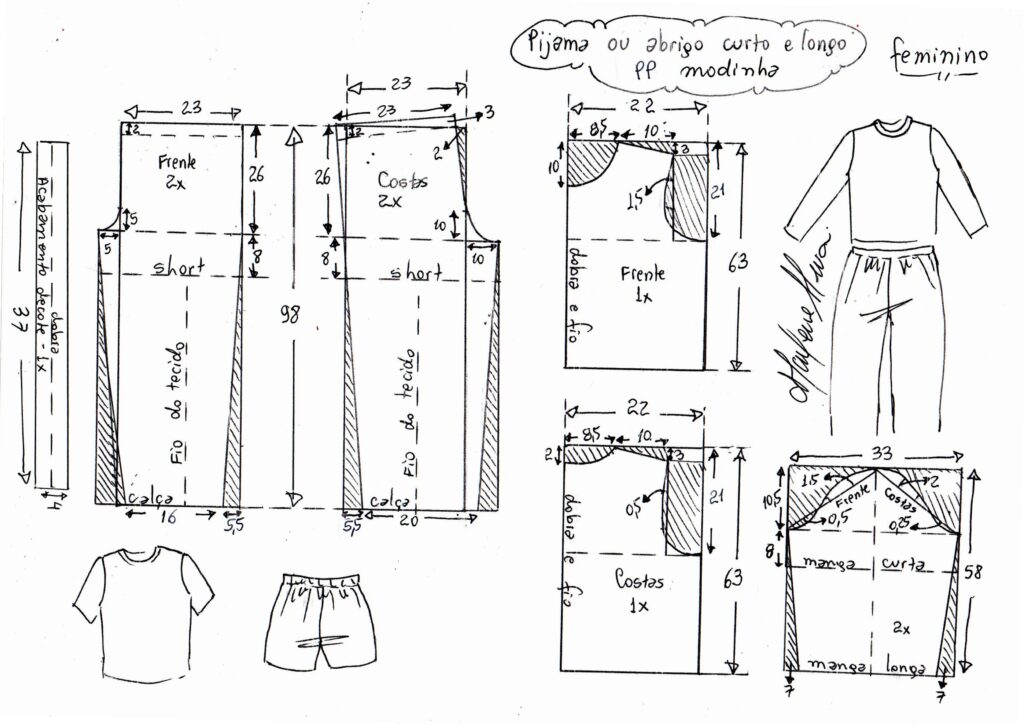 Pijama ou abrigo curto e longo
PP modinha
feminino
23
2
Frente
2x
26
5
5
8
short
98
Fio do tecido
calça
16
5,5
37
Acabamento decote - 1x
dobra
4
23
23
3
2
2
26
Costas
2x
10
10
8
short
Fio do tecido
calça
5,5
20
22
8,5
10
3
10
1,5
21
63
Frente
1x
dobra e fio
22
8,5
10
3
2
0,5
21
63
dobra e fio
Costas
1x
33
1,5
Frente
Costas
2
10,5
0,5
0,25
8
manga curta
58
2x
manga longa
7
7